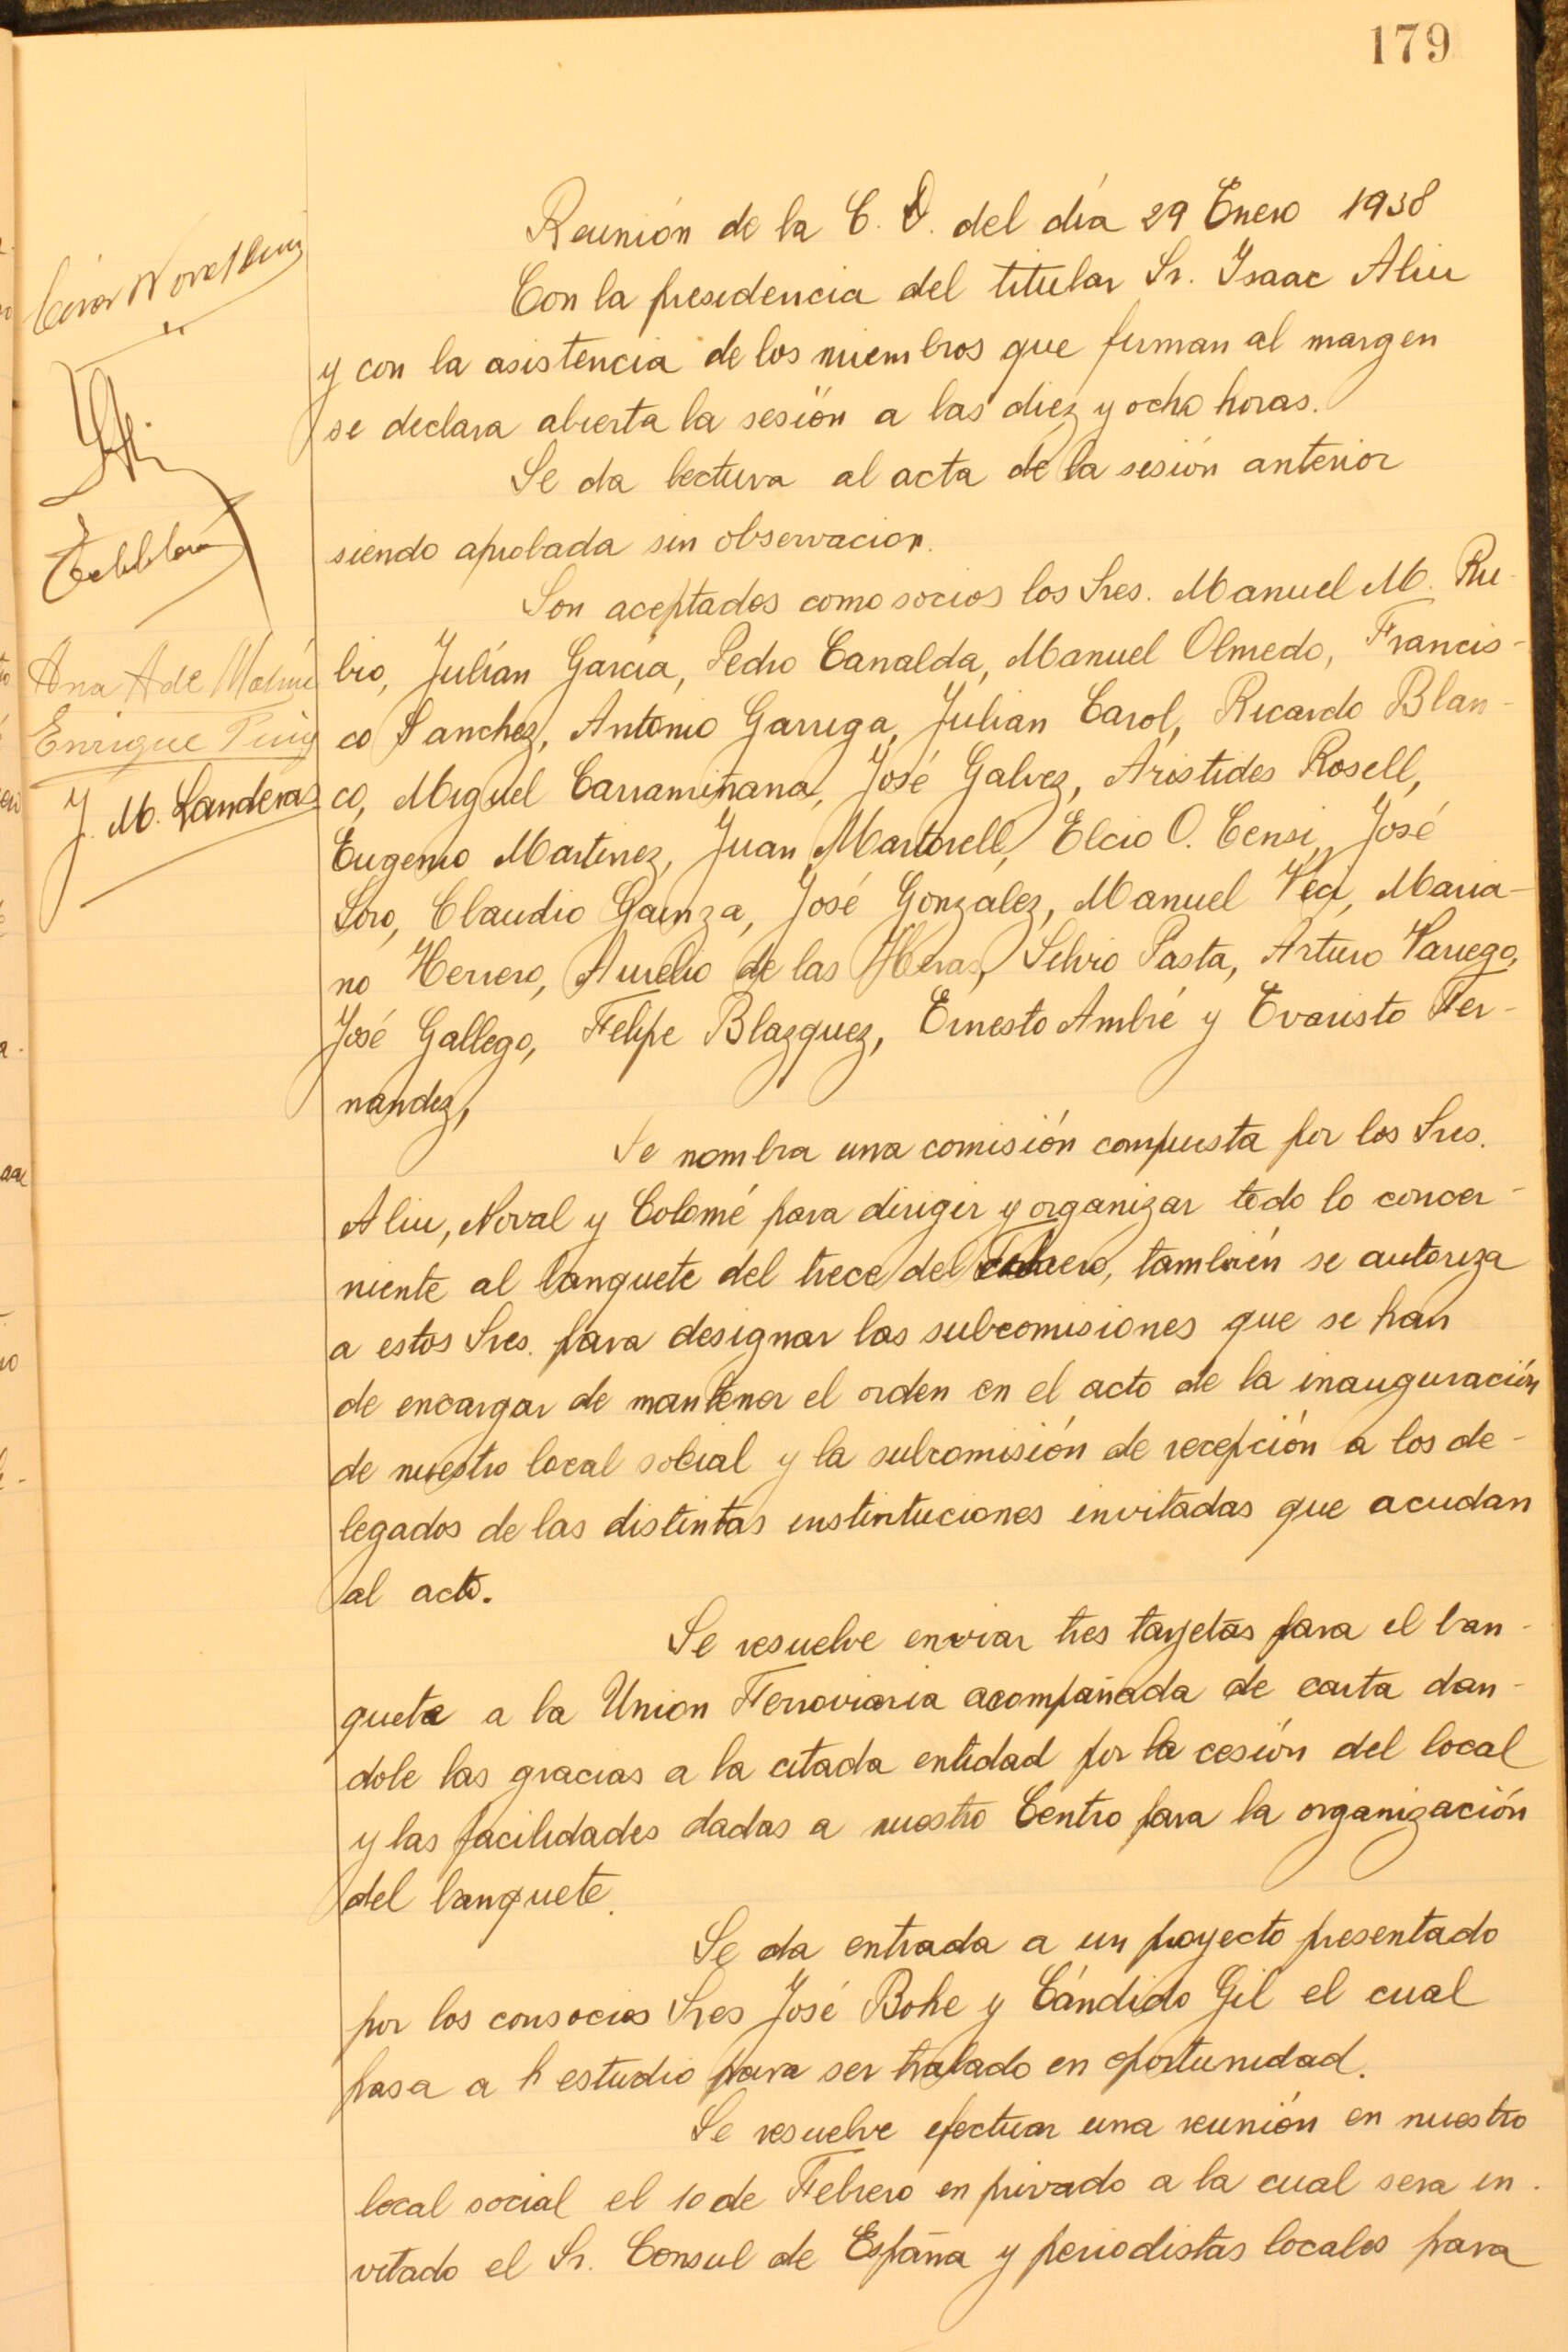 179
Reunión de la C. D. del día 29 Enero 1938
Con la presidencia del titular Sr. Isaac Aliu
y con la asistencia de los miembros que firman al margen
se declara abierta la sesión a las diez y ocho horas.
Se da lectura al acta de la sesión anterior
siendo aprobada sin observacion.
Son aceptados como socios los Sres. Manuel M. Ru-
bio, Julían García, Pedro Canalda, Manuel Olmedo, Francis-
co Sanchez, Antonio Garriga, Julian Carol, Ricardo Blan-
co, Miguel Carramiñana, José Galvez, Arístides Rosell,
Eugenio Martinez, Juan Martorell, Elcio O. Censi, José
Soro, Claudio Gainza, José González, Manuel Vea, Maria-
no Herrero, Aurelio de las Heras, Silvio Pasta, Arturo Variego,
José Gallego, Felipe Blazquez, Ernesto Ambré y Evaristo Fer-
nandez,
Se nombra una comisión compuesta por los Sres.
Aliu, Noval y Colomé para dirigir y organizar todo lo concer-
niente al banquete del trece del Febrero, también se autoriza
a estos Sres. para designar las subcomisiones que se han
de encargar de mantener el orden en el acto de la inauguración
de nuestro local social y la subcomisión de recepción a los de-
legados de las distintas instintuciones invitadas que acudan
al acto.
Se resuelve enviar tres tarjetas para el ban-
quete a la Union Ferroviaria acompañada de carta dan-
dole las gracias a la citada entidad por la cesión del local
y las facilidades dadas a nuestro Centro para la organización
del banquete.
Se da entrada a un proyecto presentado
por los consocios Sres José Bohe y Cándido Gil el cual
pasa a estudio para ser tratado en oportunidad.
Se resuelve efectuar una reunión en nuestro
local social el 10 de Febrero en privado a la cual sera in-
vitado el Sr. Consul de España y periodistas locales para
Ana A de
Enrique Puig
J. M. Landeras